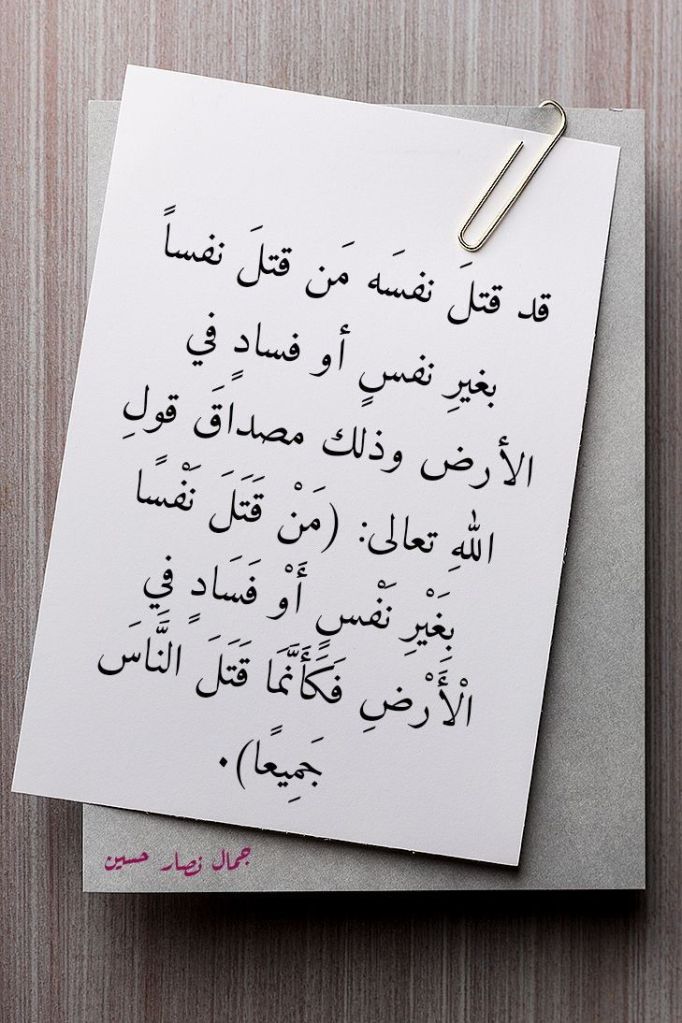 قد قتلَ نفسَه مَن قتلَ نفساً
بغيرِ نفسٍ أو فسادٍ في
الأرض وذلك مصداقَ قولِ
اللهِ تعالى: (مَنْ قَتَلَ نَفْسًا
بِغَيْرِ نَفْسٍ أَوْ فَسَادٍ فِي
الْأَرْضِ فَكَأَنَّمَا قَتَلَ النَّاسَ
جَمِيعًا).
جمال نصار حسين